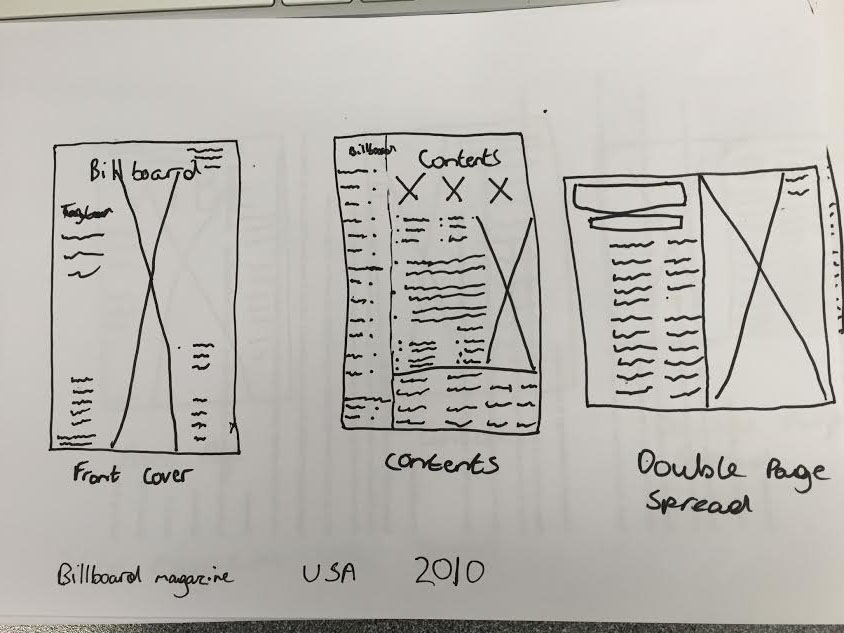 Billboard
Billboard
Contents
Front Cover
Contents
Double Page
Spread
Billboard magazine USA 2010